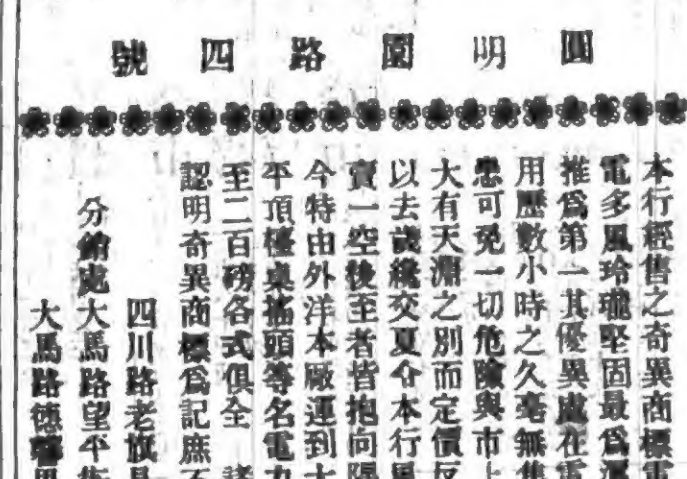 圓明園路四號
本行經售之奇異商標電
電多風玲瓏堅固最爲適
推爲第一其優異處在電
用歷數小時之久毫無焦
患可免一切危險與市上
大有天淵之別而定價反
以去歲纔交夏令本行風
賣一空後至者皆抱向隅
今特由外洋本廠運到大
平頂檯桌搖頭等名電力
至二百磅各式俱全 諸
認明奇異商標爲記庶不
四川路老旗昌
分銷處大馬路望平街
大馬路德馨里